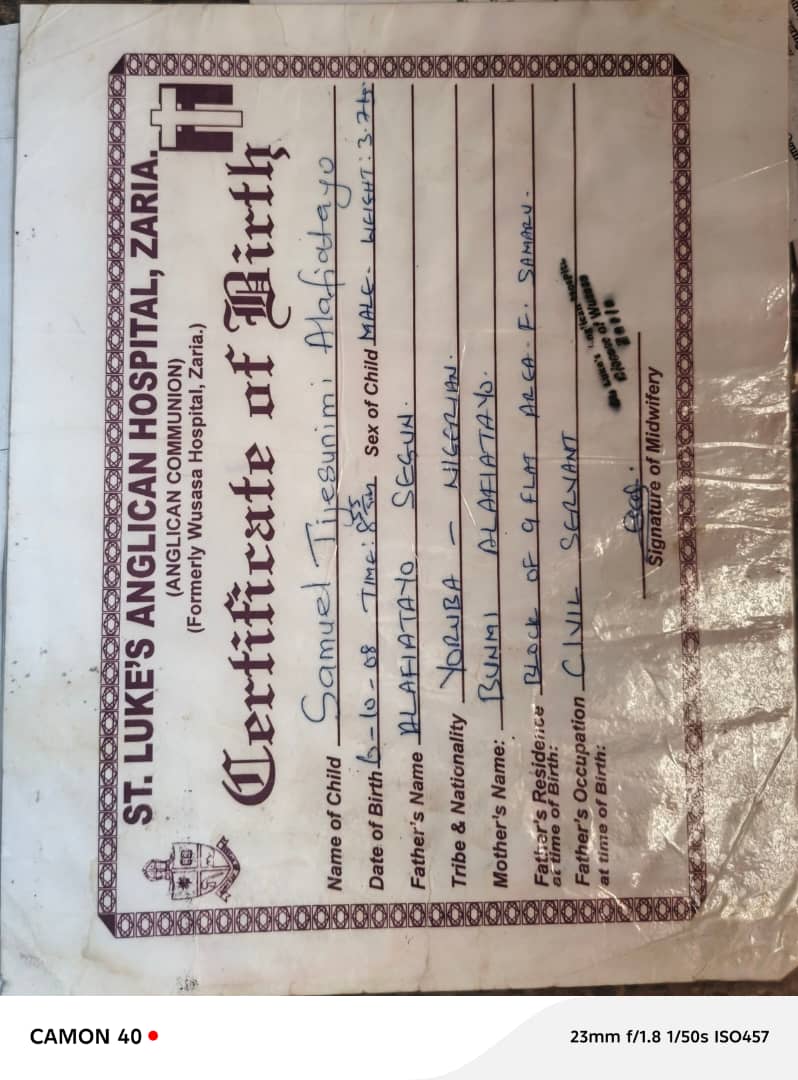 ST. LUKE'S ANGLICAN HOSPITAL, ZARIA.
(ANGLICAN COMMUNION)
(Formerly Wusasa Hospital, Zaria.)
Certificate of Birth
Name of Child Samuel Tijesunimi Alafiatayo
Date of Birth 6-10-08 TIME: 8:55 Sex of Child MALE- WEIGHT: 3.2kg
Father's Name ALAFIATAYO SEGUN.
Tribe & Nationality YORUBA - NIGERIAN.
Mother's Name: BUNMI ALAFIATAYO.
Father's Residence BLOCK OF 9 FLAT AREA-F. SAMARU.
at time of Birth:
Father's Occupation CIVIL SERVANT
at time of Birth:
St. Luke's Anglican Hospital
Diocese of Wusasa
Zaria
Signature of Midwifery
CAMON 40
23mm f/1.8 1/50s ISO457